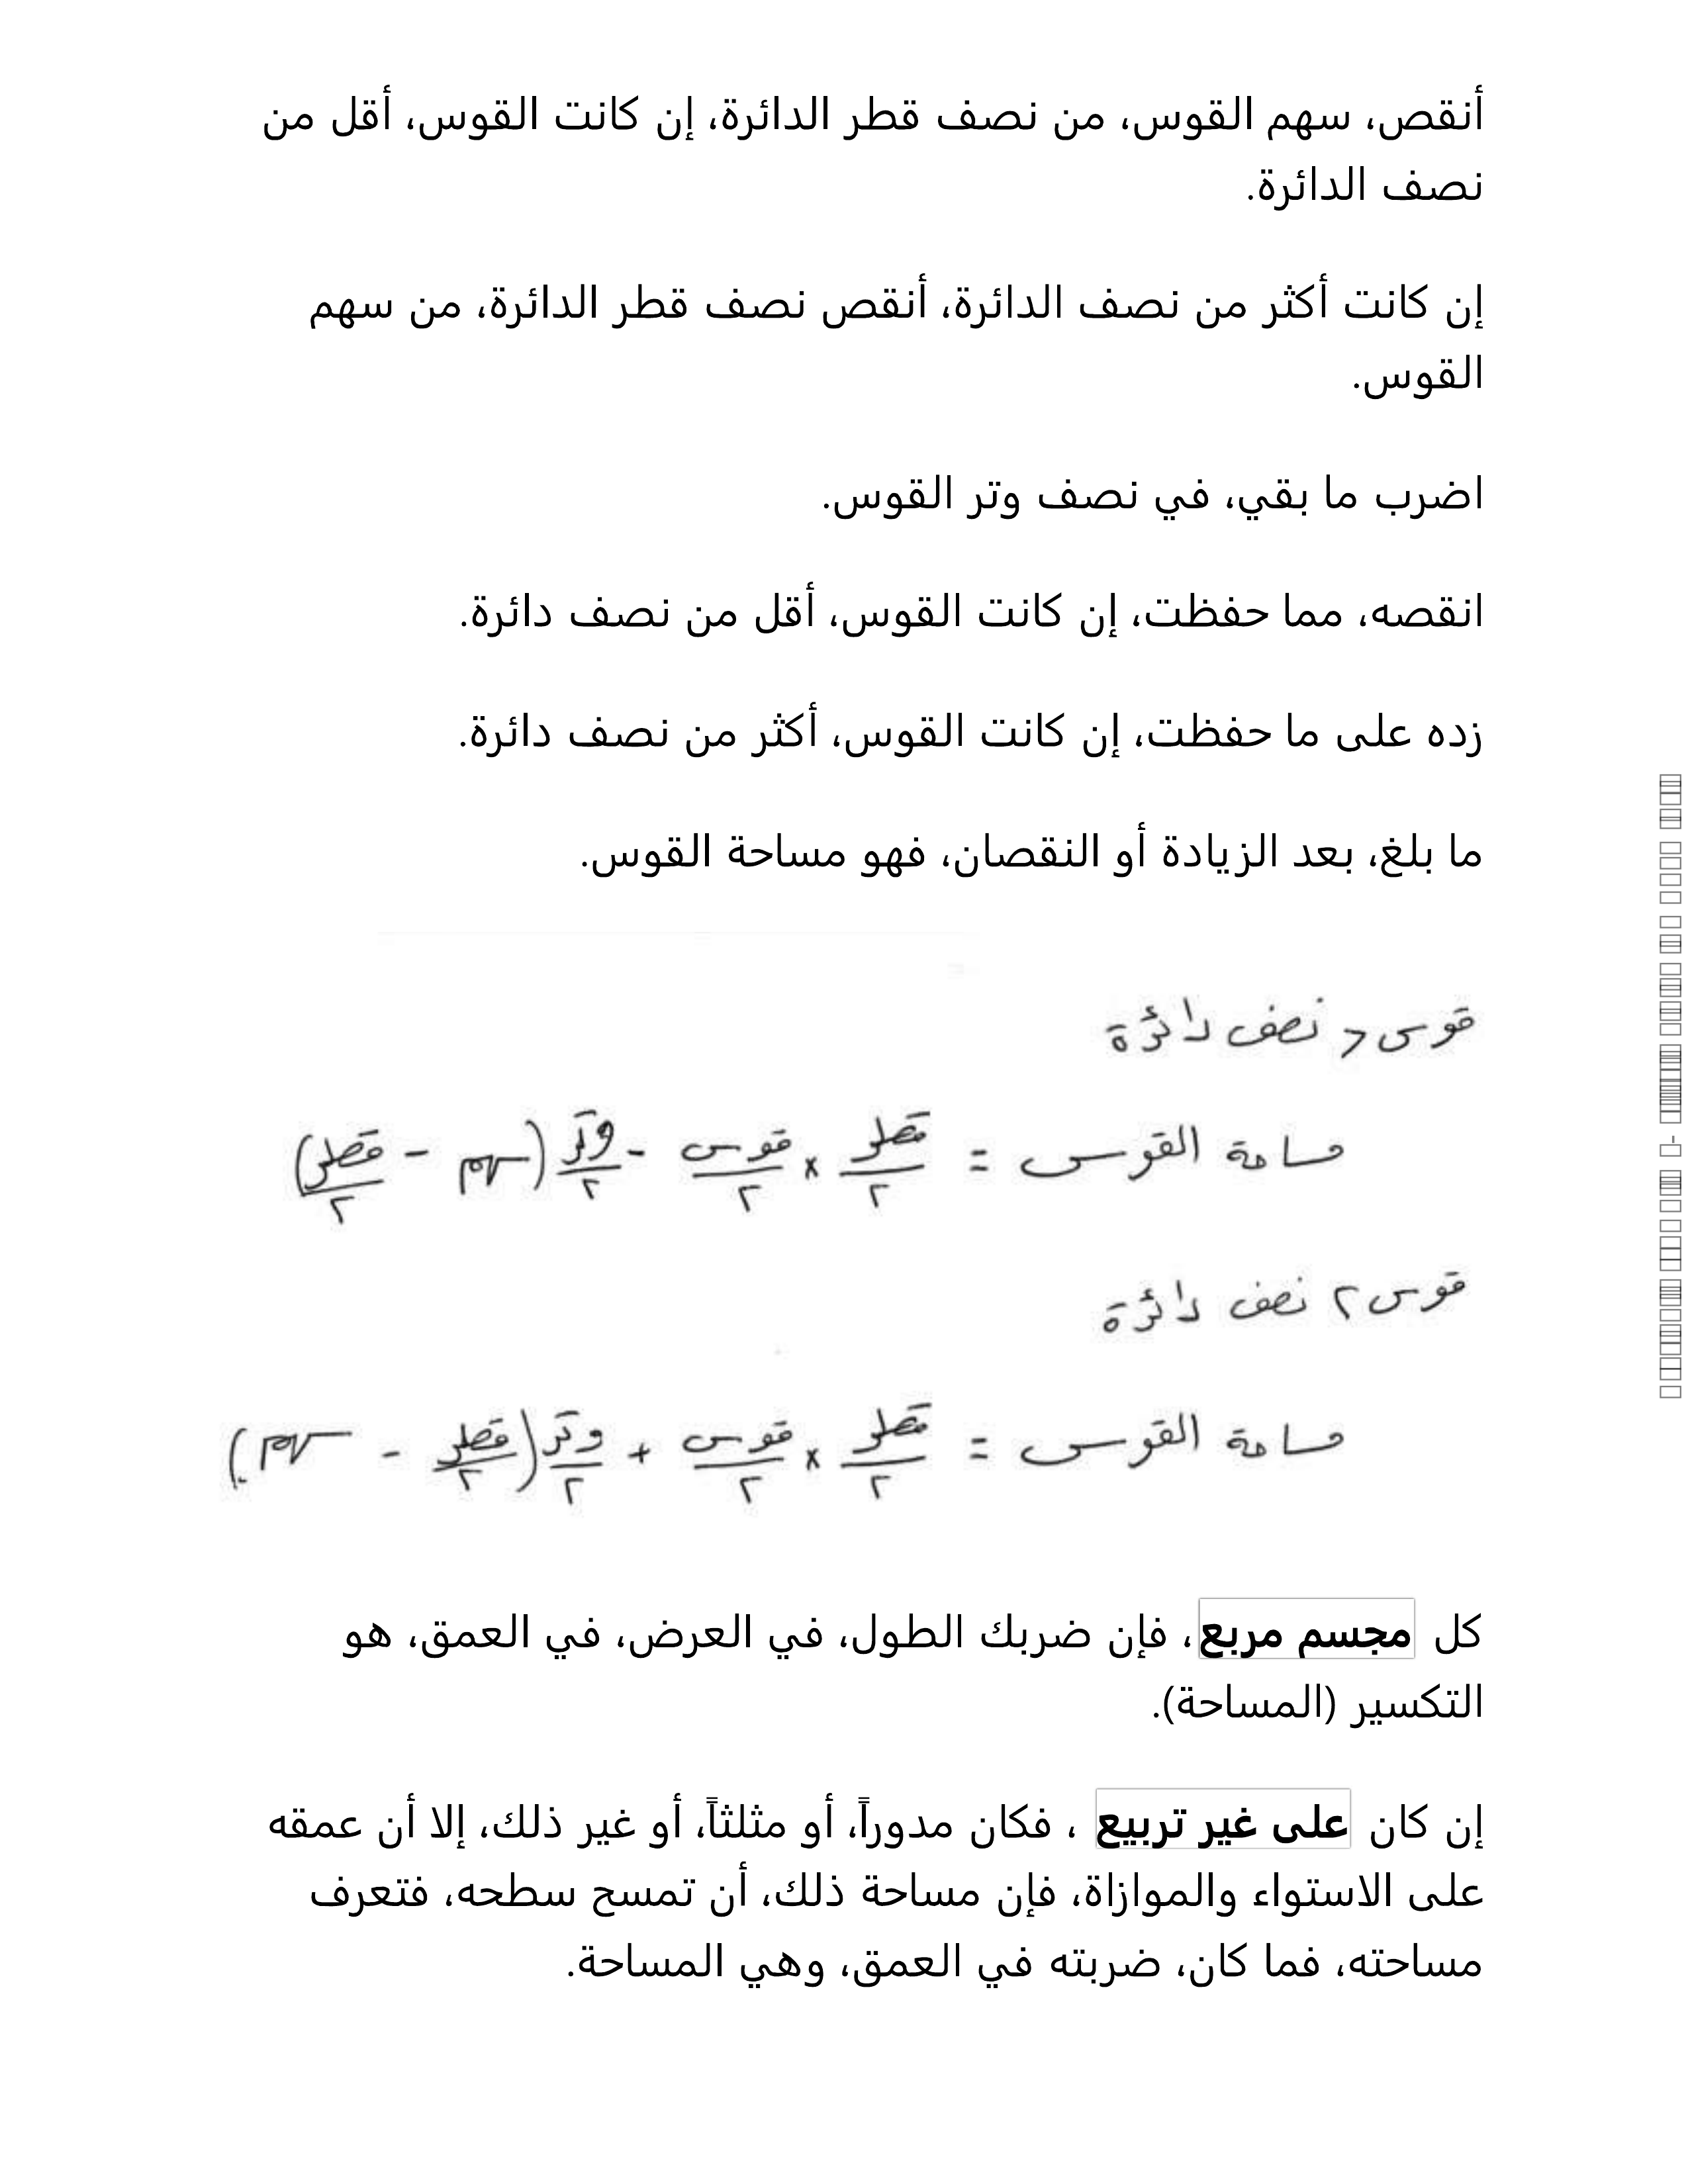 أنقص، سهم القوس، من نصف قطر الدائرة، إن كانت القوس، أقل من
نصف الدائرة.
إن كانت أكثر من نصف الدائرة، أنقص نصف قطر الدائرة، من سهم
القوس.
اضرب ما بقي، في نصف وتر القوس.
انقصه، مما حفظت، إن كانت القوس، أقل من نصف دائرة.
زده على ما حفظت، إن كانت القوس، أكثر من نصف دائرة.
ما بلغ، بعد الزيادة أو النقصان، فهو مساحة القوس.
قوس > نصف دائرة
مساحة القوس = قطر/٢ × قوس/٢ - وتر/٢ (سهم - قطر/٢)
قوس < نصف دائرة
مساحة القوس = قطر/٢ × قوس/٢ + وتر/٢ (قطر/٢ - سهم)
كل مجسم مربع، فإن ضربك الطول، في العرض، في العمق، هو
التكسير (المساحة).
إن كان على غير تربيع ، فكان مدوراً، أو مثلثاً، أو غير ذلك، إلا أن عمقه
على الاستواء والموازاة، فإن مساحة ذلك، أن تمسح سطحه، فتعرف
مساحته، فما كان، ضربته في العمق، وهي المساحة.